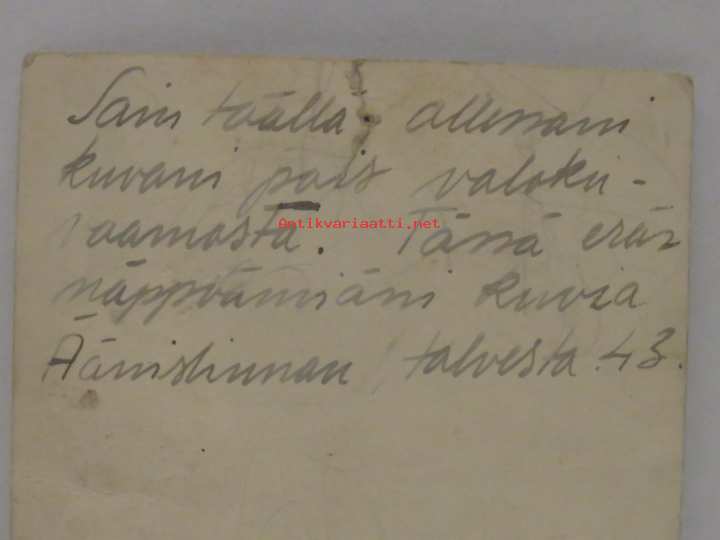 Sain täällä ollessani
kuvani pois valoku-
vaamosta. Tässä eräs
näppäämiäni kuvia
Äänislinnan talvesta 43.
Antikvariaatti.net